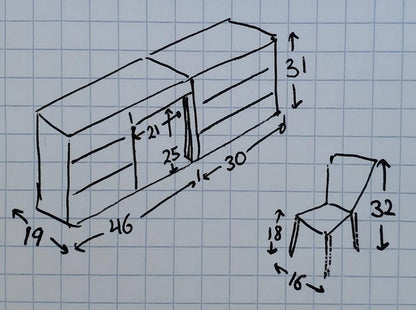 31
21
25
30
46
19
32
18
16